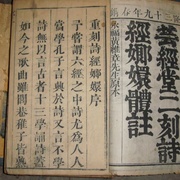 三十九年春鐫
芸經堂二刻詩
經嫏嬛體註
永福黃維章先生原本
重刻詩經嫏嬛序
予嘗謂六經之中詩尤為人人
當學孔子言興於詩又言不學
詩無以言古者十三學誦詩
如今之歌曲雖閭巷稚子皆